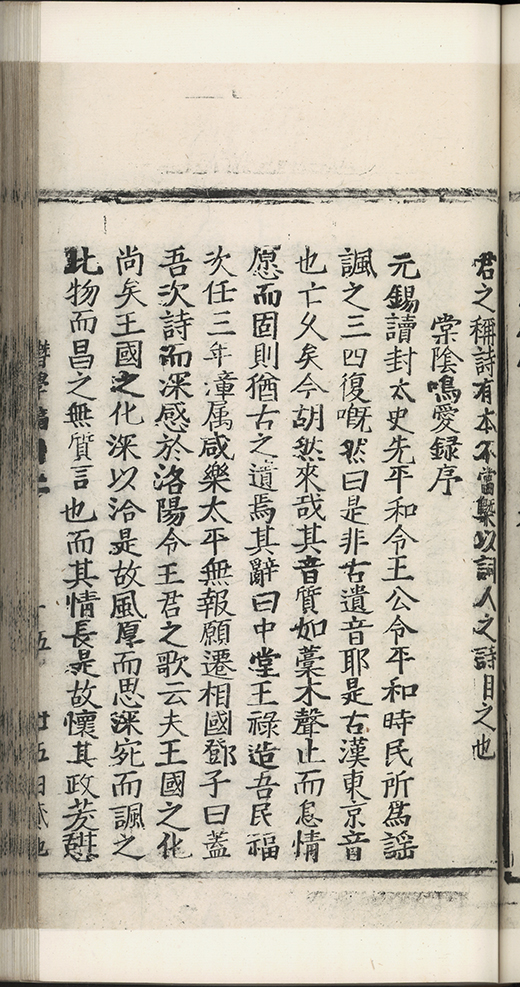 君之稱詩有本不當槩以詞人之詩目之也
棠陰鳴愛録序
元錫讀封太史先平和令王公令平和時民所為謡
諷之三四復嘅然曰是非古遺音耶是古漢東京音
也亡久矣今胡然來哉其音質如藁木聲止而怠情
愿而固則猶古之遺焉其辭曰中堂王祿造吾民福
次任三年漳属咸樂太平無報願遷相國鄧子曰蓋
吾次詩而深感於洛陽令王君之歌云夫王國之化
尚矣王國之化深以洽是故風厚而思深宛而諷之
此物而昌之無質言也而其情長是故懷其政芳